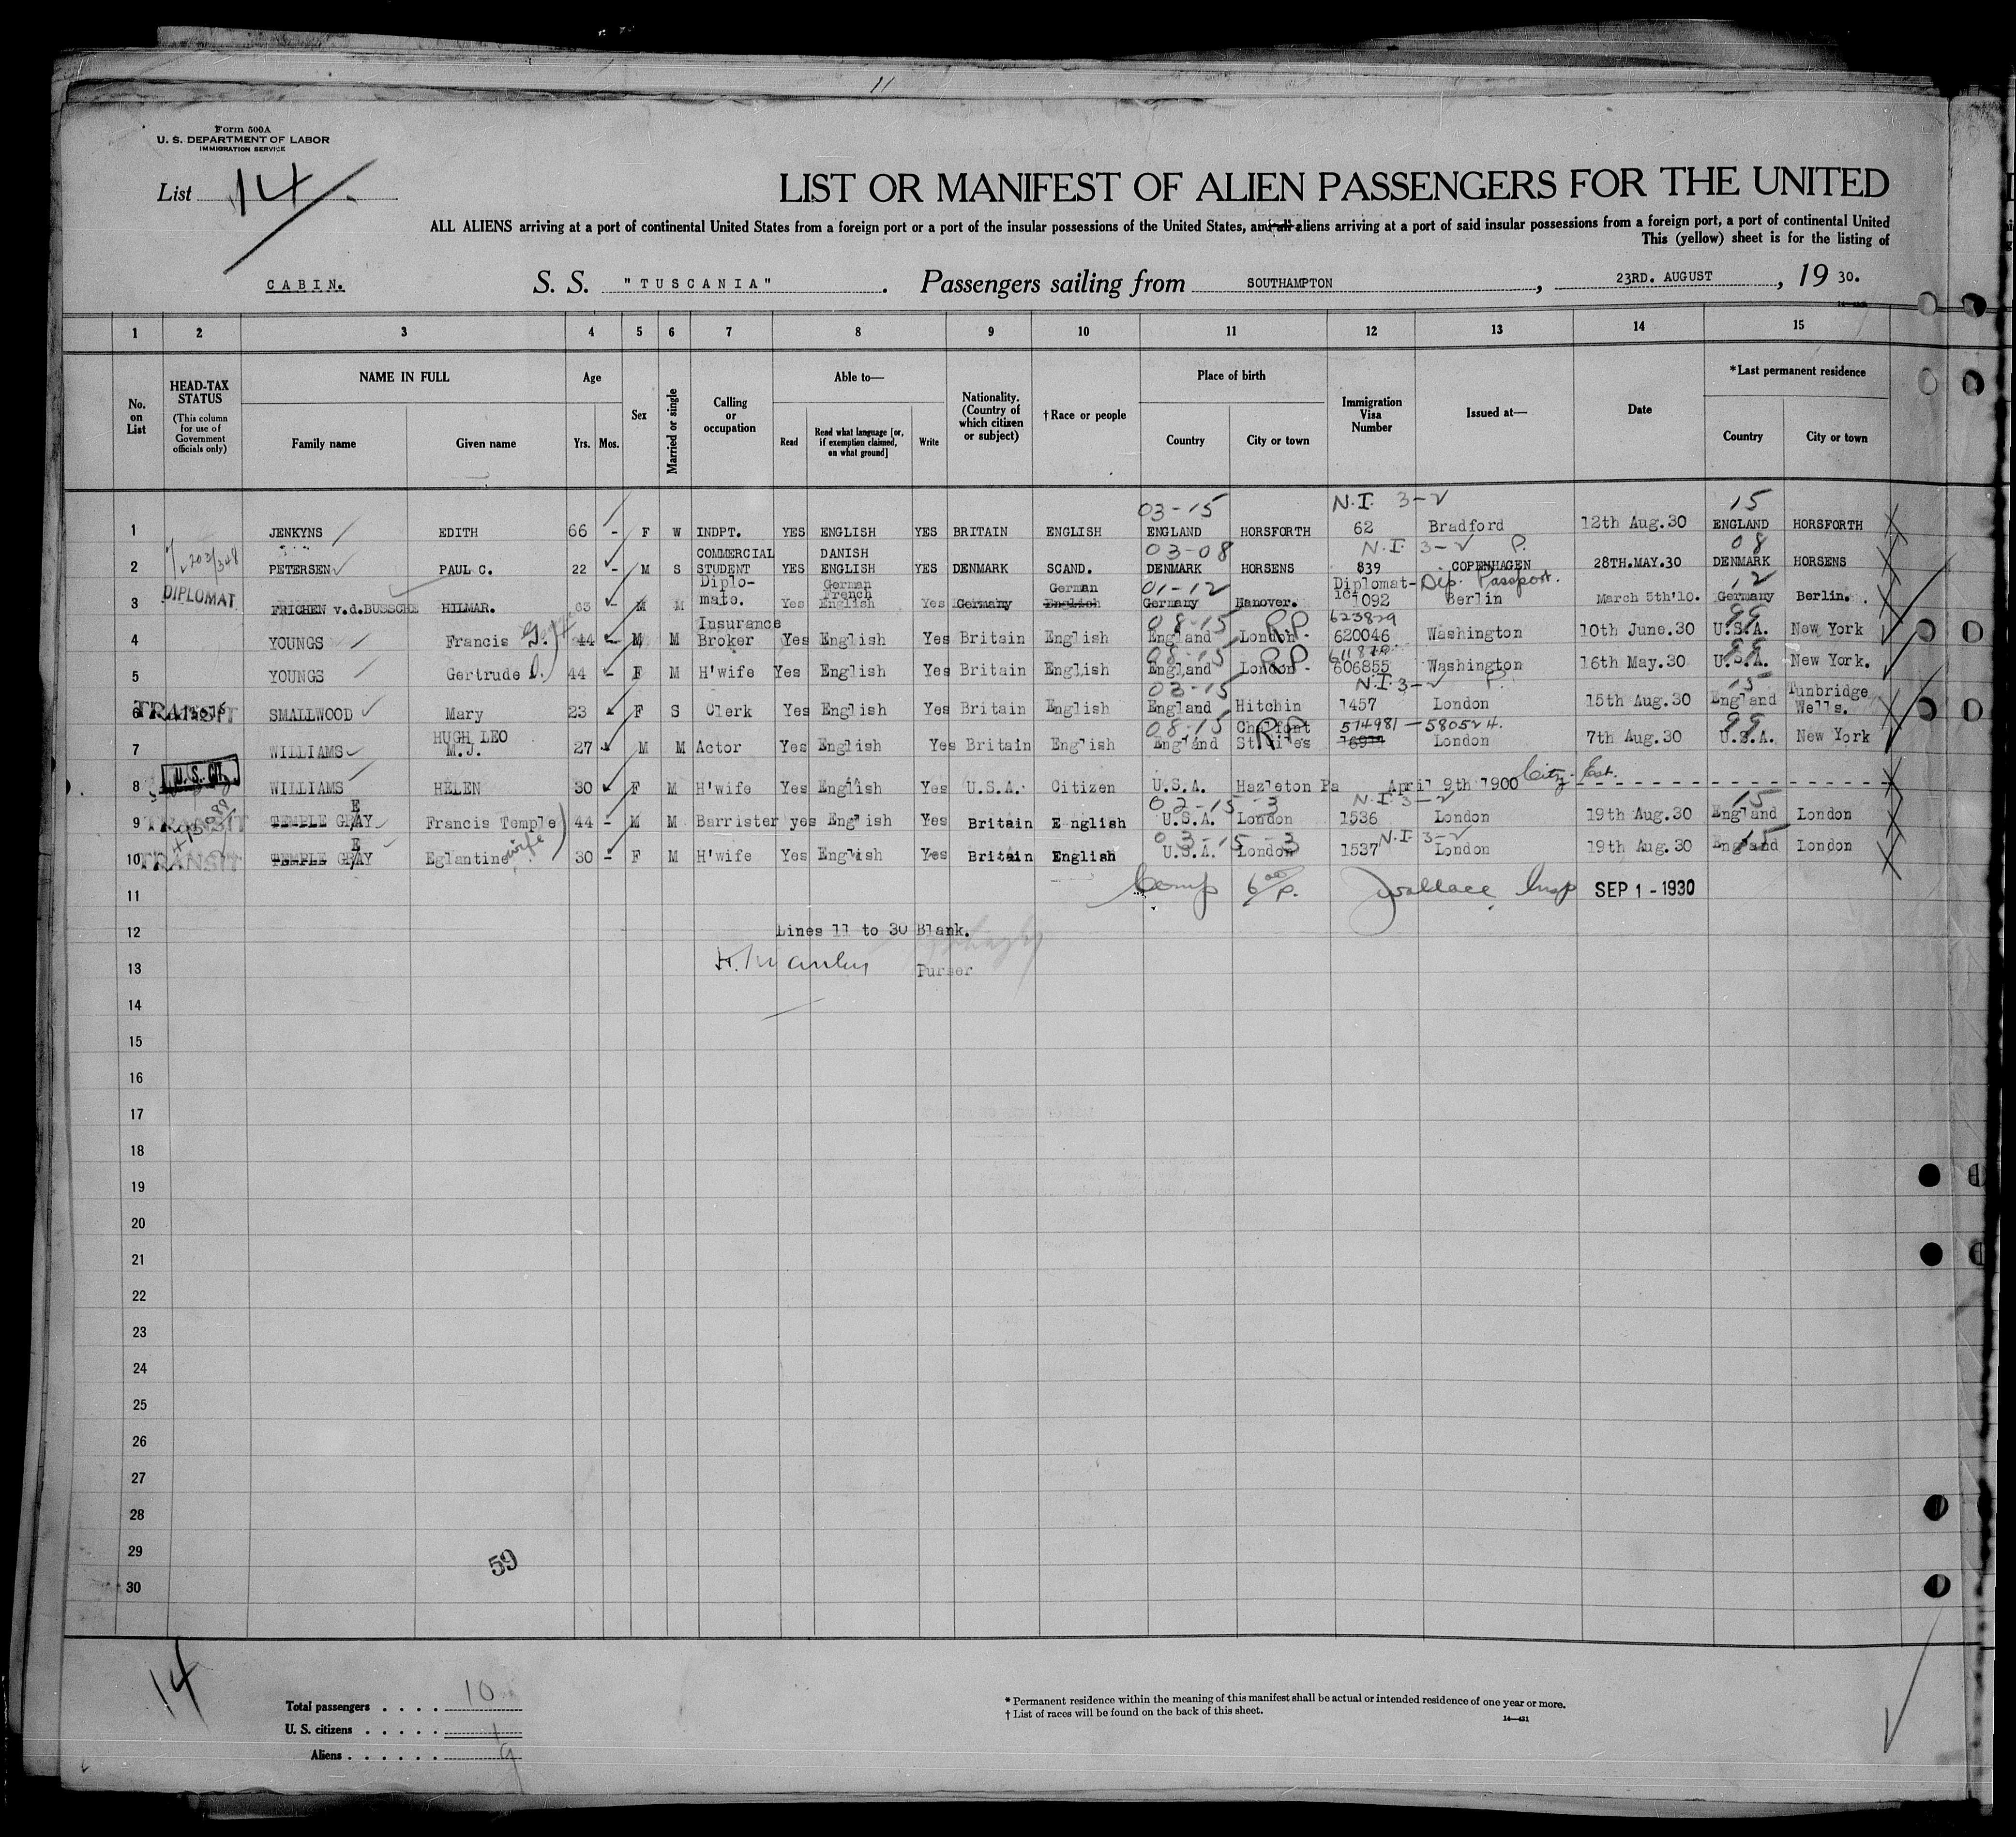 11
Form 500A
U. S. DEPARTMENT OF LABOR
IMMIGRATION SERVICE
List 14
LIST OR MANIFEST OF ALIEN PASSENGERS FOR THE UNITED
ALL ALIENS arriving at a port of continental United States from a foreign port or a port of the insular possessions of the United States, and all aliens arriving at a port of said insular possessions from a foreign port, a port of continental United
This (yellow) sheet is for the listing of
CABIN. S. S. "TUSCANIA". Passengers sailing from SOUTHAMPTON, 23RD. AUGUST, 19 30.
1 2 3 4 5 6 7 8 9 10 11 12 13 14 15
No. on List
HEAD-TAX STATUS (This column for use of Government officials only)
NAME IN FULL Family name Given name
Age Yrs. Mos.
Sex
Married or single
Calling or occupation
Able to— Read Read what language [or, if exemption claimed, on what ground] Write
Nationality. (Country of which citizen or subject)
† Race or people
Place of birth Country City or town
Immigration Visa Number
Issued at—
Date
*Last permanent residence Country City or town
03-15 N.I. 3-2 15
1 JENKYNS EDITH 66 - F W INDPT. YES ENGLISH YES BRITAIN ENGLISH ENGLAND HORSFORTH 62 Bradford 12th Aug.30 ENGLAND HORSFORTH
COMMERCIAL DANISH 03-08 N.I. 3-2 P. 08
2 PETERSEN PAUL C. 22 - M S STUDENT YES ENGLISH YES DENMARK SCAND. DENMARK HORSENS 839 COPENHAGEN 28TH.MAY.30 DENMARK HORSENS
DIPLOMAT Diplo- German French German 01-12 Diplomat- Dip. Passport. 12
3 FRICHEN v.d.BUSSCHE HILMAR. 63 - M M mate. Yes English Yes Germany English Germany Hanover. ic 1092 Berlin March 5th'10. Germany Berlin.
Insurance 08-15 RP 623829 99
4 YOUNGS Francis G. 44 - M M Broker Yes English Yes Britain English England London. 620046 Washington 10th June.30 U.S.A. New York
08-15 RP 99
5 YOUNGS Gertrude D. 44 - F M H'wife Yes English Yes Britain English England London. 606855 Washington 16th May.30 U.S.A. New York.
03-15 N.I. 3-2 P. 15 Tunbridge
6 TRANSIT SMALLWOOD Mary 23 F S Clerk Yes English Yes Britain English England Hitchin 1457 London 15th Aug.30 England Wells.
HUGH LEO 08-15 Chalfont RP 574981-580524. 99
7 WILLIAMS M.J. 27 M M Actor Yes English Yes Britain English England St Giles London 7th Aug.30 U.S.A. New York
U.S. CIT. Citz. Est.
8 WILLIAMS HELEN 30 F M H'wife Yes English Yes U.S.A. Citizen U.S.A. Hazleton Pa April 9th 1900
E 02-15-3 N.I. 3-2 15
9 TRANSIT TEMPLE GRAY Francis Temple 44 - M M Barrister yes English Yes Britain English U.S.A. London 1536 London 19th Aug.30 England London
E wife 03-15-3 N.I. 3-2 15
10 TRANSIT TEMPLE GRAY Eglantine 30 - F M H'wife Yes English Yes Britain English U.S.A. London 1537 London 19th Aug.30 England London
11 Wallace Insp SEP 1 - 1930
12 Lines 11 to 30 Blank.
13 Purser
14
15
16
17
18
19
20
21
22
23
24
25
26
27
28
29
30
59
14
Total passengers . . . . 10
U. S. citizens . . . . . 1
Aliens . . . . . . 9
* Permanent residence within the meaning of this manifest shall be actual or intended residence of one year or more.
† List of races will be found on the back of this sheet.
14—421